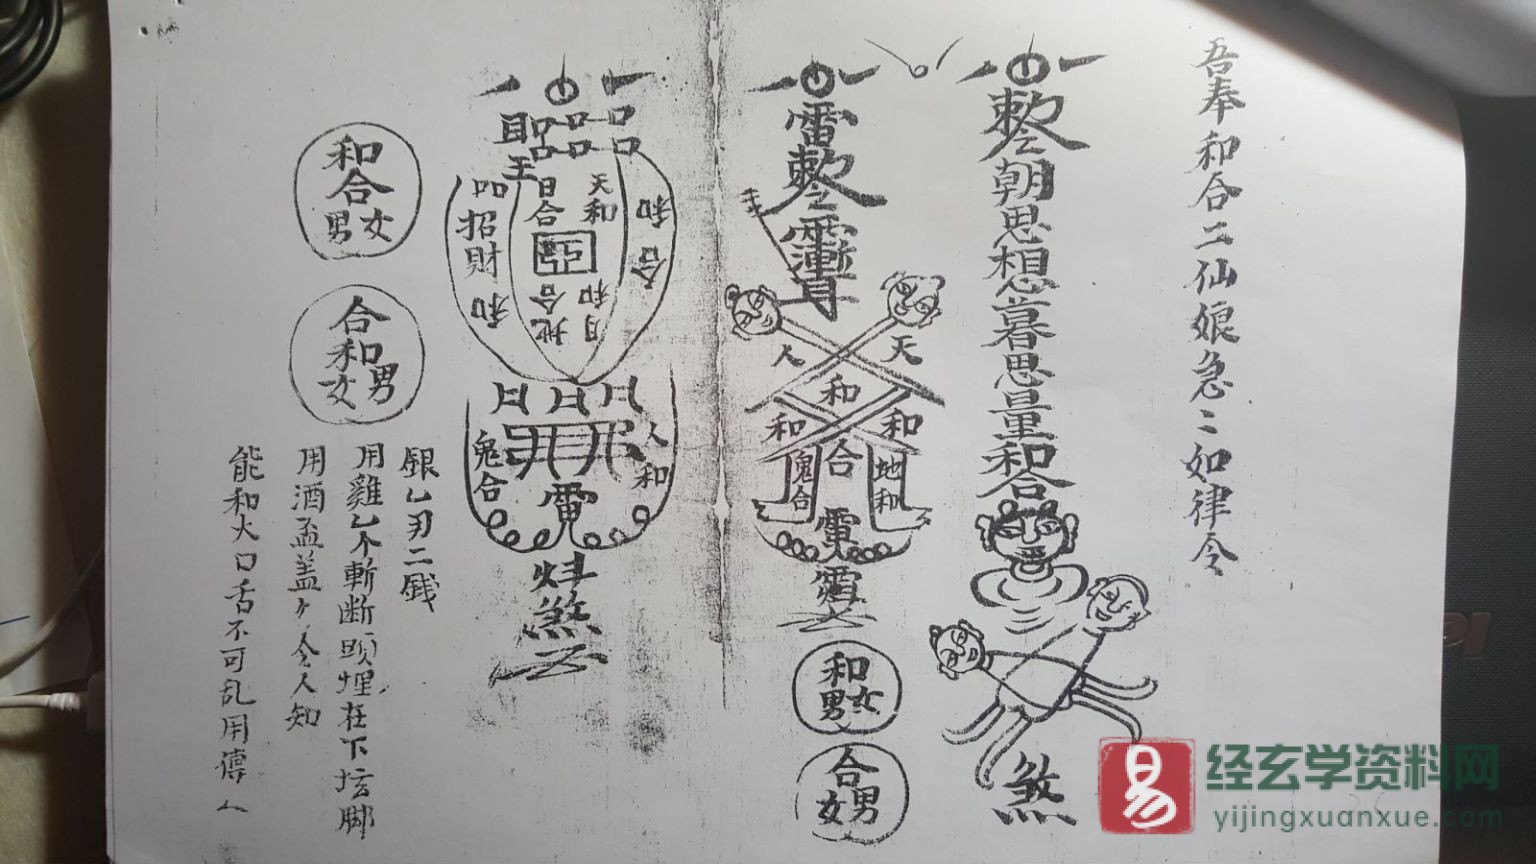 吾奉和合二仙娘急二如律令
敕令朝思想暮思量和合
煞
雷敕令
人 天
和
和 和
合
鬼合 地和
和
男女
合
女男
品品品
天和
日合
月和
地合
和合
品招財和
日日日
人和
鬼合
煞
和合
男女
合和
女男
銀乙另二錢
用雞乙个斬断頭埋在下坛脚
用酒盃盖ケ令人知
能和大口舌不可乱用傳人
易
经玄学资料网
yijingxuanxue.com